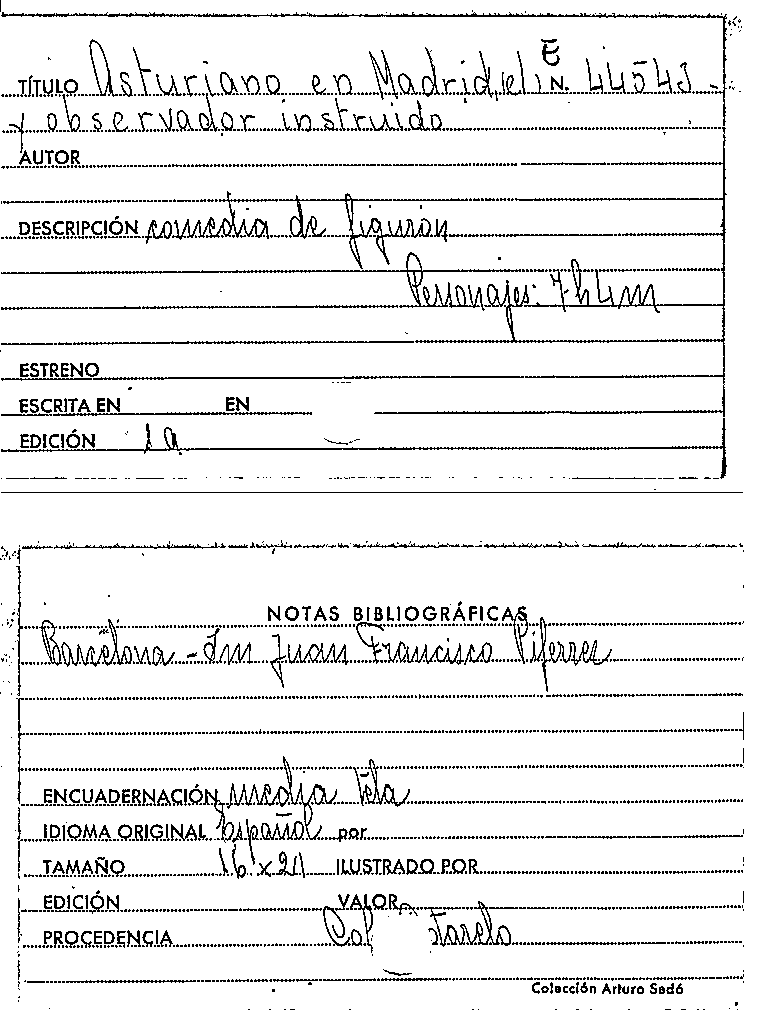 TÍTULO Asturiano en Madrid, el E N. 44543
y observador instruido
AUTOR
DESCRIPCIÓN comedia de figurón
Personajes: 7h 4m
ESTRENO
ESCRITA EN EN
EDICIÓN 1a
NOTAS BIBLIOGRÁFICAS
Barcelona - Im Juan Francisco Piferrer
ENCUADERNACIÓN media tela
IDIOMA ORIGINAL Español por
TAMAÑO ILUSTRADO POR
EDICIÓN VALOR
PROCEDENCIA Col
Colección Arturo Sedó